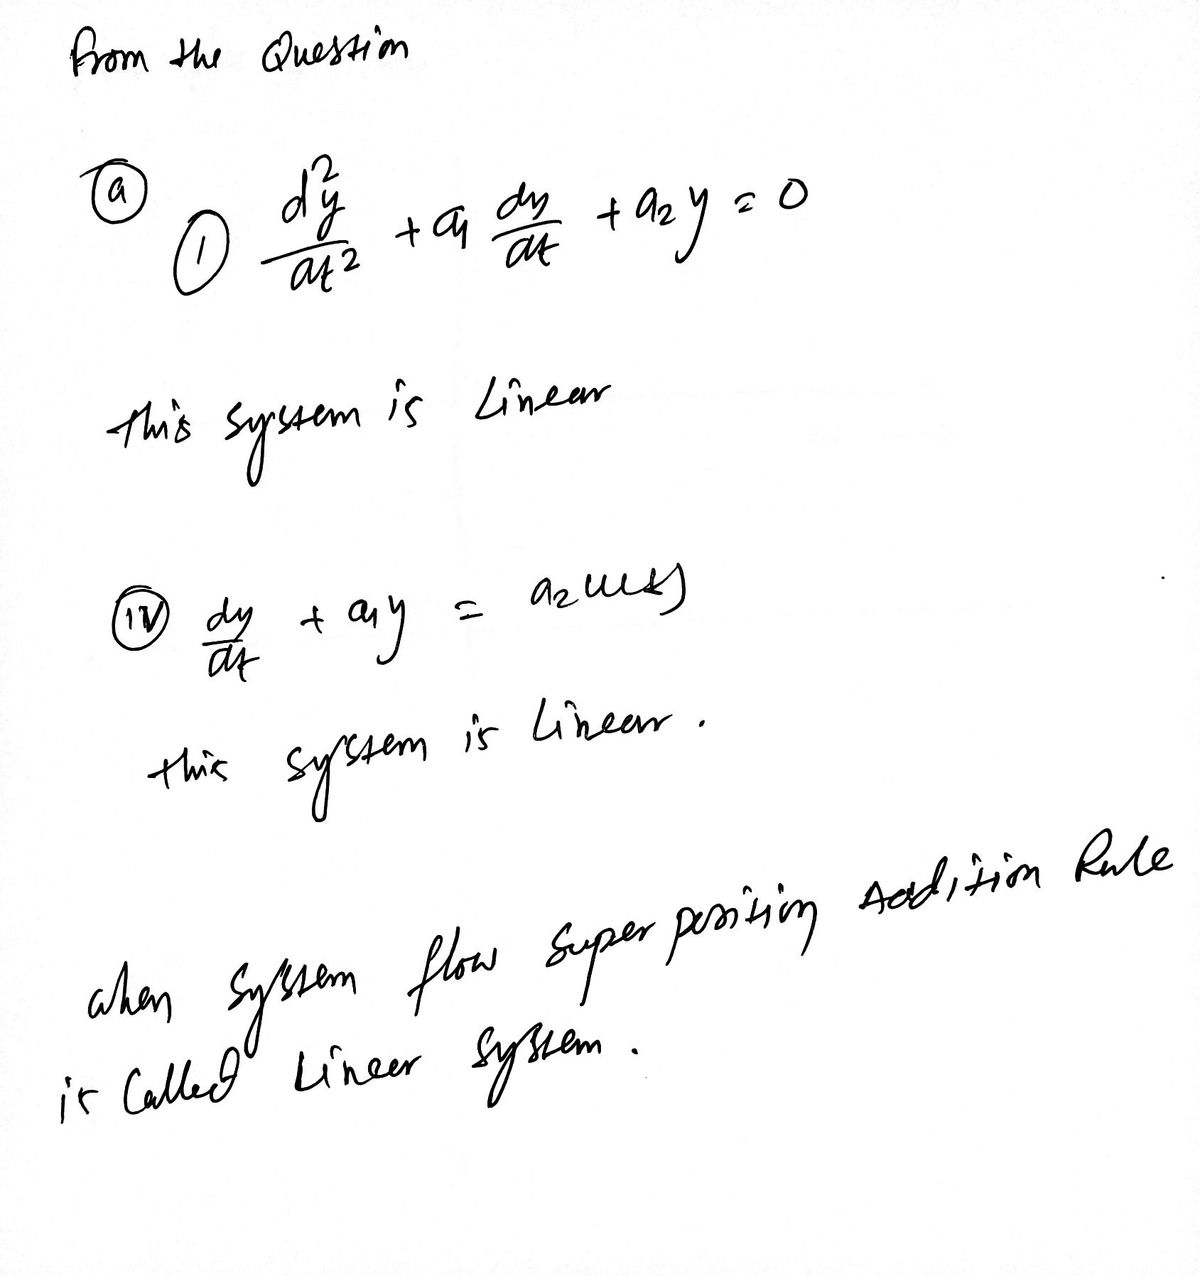 from the Question
(a) (1) d²y/dt² + a₁ dy/dt + a₂ y = 0
this system is Linear
(iv) dy/dt + a₁ y = a₂ u(t)
this system is Linear.
when system flow super position Addition Rule
is Called Linear system.